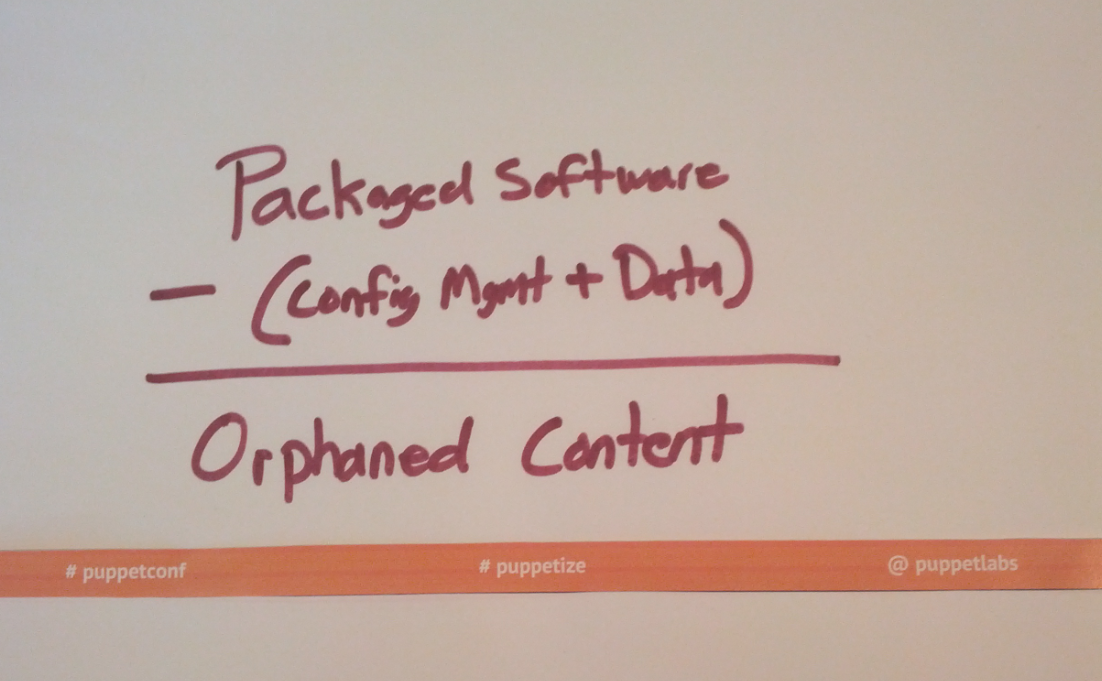 Packaged Software
— (Config Mgmt + Data)
Orphaned Content
# puppetconf # puppetize @ puppetlabs